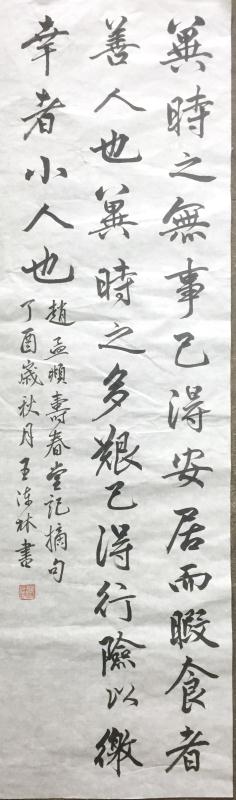 冀時之無事己得安居而暇食者
善人也冀時之多艱己得行險以徼
幸者小人也
趙孟頫壽春堂記摘句
丁酉歲秋月王海林書